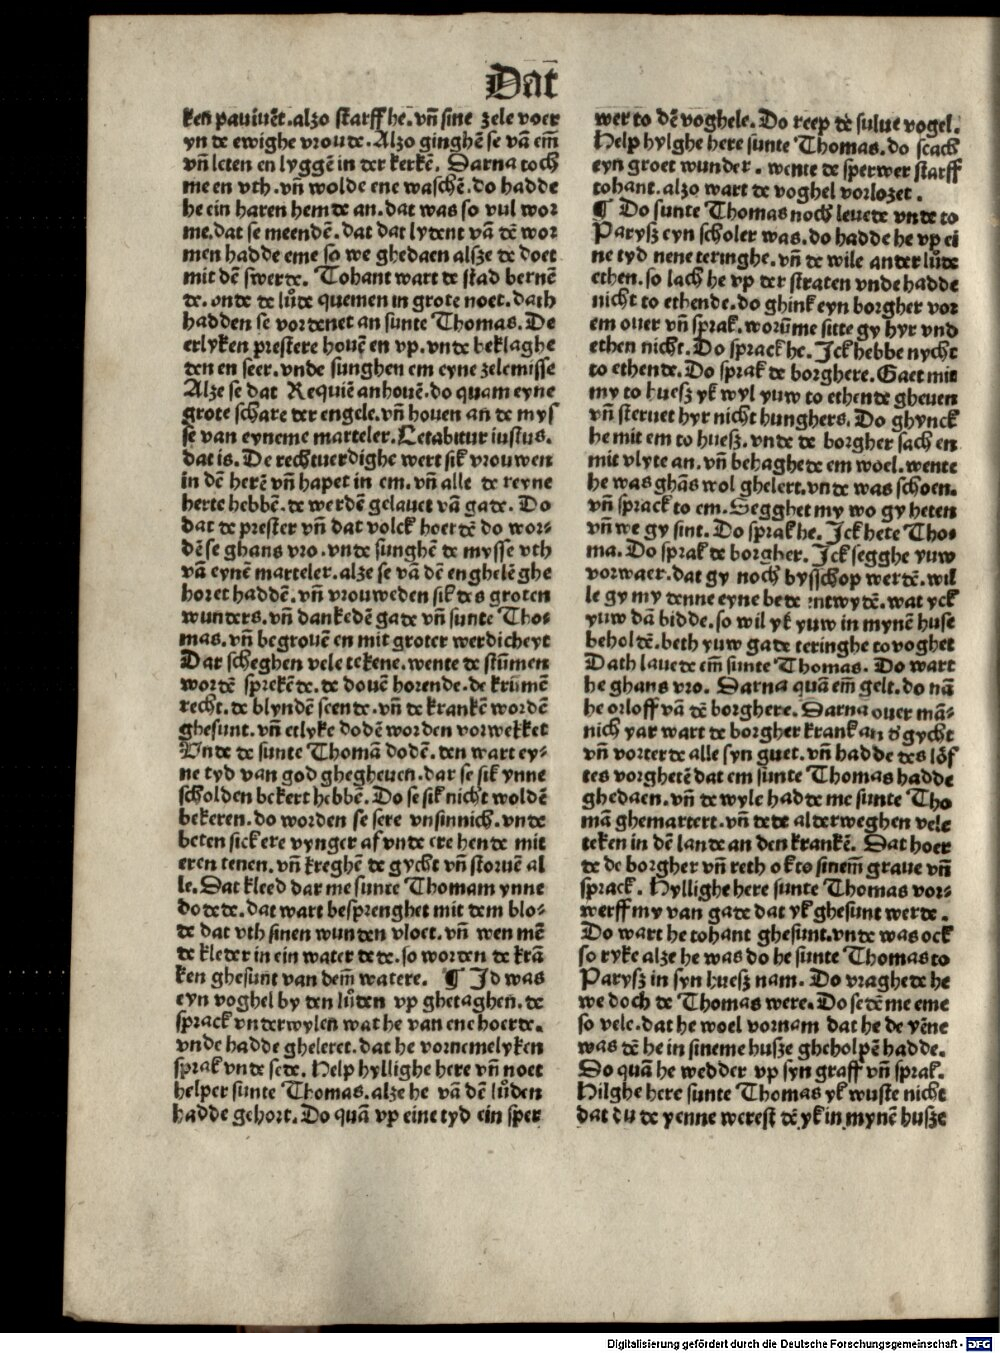 Dat
ken pauimẽt.alzo starff he.vñ sine zele voer
yn de ewighe vroude.Alzo ginghẽ se vã em̃
vñ leten en lyggẽ in der kerkẽ. Darna toch
me en vth.vñ wolde ene waschẽ.do hadde
he ein haren hemde an.dat was so vul wor
me.dat se meendẽ.dat dat lydent vã dẽ wor
men hadde eme so we ghedaen alsze de doet
mit dẽ swerde. Tohant wart de stad bernẽ
de.vnde de lůde quemen in grote noet.dath
hadden se vordenet an sunte Thomas.De
erlyken prestere houẽ en vp.vnde beklaghe
den en seer.vnde sunghen em eyne zelemisse
Alze se dat Requiẽ anhouẽ.do quam eyne
grote schare der engele.vñ houen an de mys
se van eyneme marteler.Letabitur iustus.
dat is.De rechtuerdighe wert sik vrouwen
in dẽ herẽ vñ hapet in em.vñ alle de reyne
herte hebbẽ.de werdẽ gelauet vã gade.Do
dat de prester vñ dat volck hoerdẽ do wor-
dẽ se ghans vro.vnde sunghẽ de mysse vth
vã eynẽ marteler.alze se vã dẽ enghelẽ ghe
horet haddẽ.vñ vrouweden sik des groten
wunders.vñ dankedẽ gade vñ sunte Tho-
mas.vñ begrouẽ en mit groter werdicheyt
Dar scheghen vele tekene.wente de stũmen
wordẽ sprekẽde.de douẽ horende.de krũmẽ
recht.de blyndẽ seende.vñ de krankẽ wordẽ
ghesunt.vñ etlyke dodẽ worden vorwekket
Vnde de sunte Thomã dodẽ.den wart ey-
ne tyd van god ghegheuen.dar se sik ynne
scholden bekert hebbẽ.Do se sik nicht woldẽ
bekeren.do worden se sere vnsinnich.vnde
beten sick ere vynger af vnde ere hende mit
eren tenen.vñ kreghẽ de gycht vñ storuẽ al
le.Dat kleed dar me sunte Thomam ynne
dodede.dat wart besprenghet mit dem blo-
de dat vth sinen wunden vloet.vñ wen mẽ
de kleder in ein water dede.so worden de krã
ken ghesunt van dem̃ watere. ¶ Id was
eyn voghel by den lůden vp ghetaghen.de
sprack vnderwylen wat he van ene hoerde.
vnde hadde gheleret.dat he vornemelyken
sprak vnde sede.Help hyllighe here vñ noet
helper sunte Thomas.alze he vã dẽ lůden
hadde gehort.Do quã vp eine tyd ein sper
wer to dẽ voghele.Do reep de sulue vogel.
Help hylghe here sunte Thomas.do scach
eyn groet wunder.wente de sperwer starff
tohant.alzo wart de voghel vorlozet.
¶ Do sunte Thomas noch leuede vnde to
Parysz eyn scholer was.do hadde he vp ei
ne tyd nene teringhe.vñ de wile ander lůde
ethen.so lach he vp der straten vnde hadde
nicht to ethende.do ghink eyn borgher vor
em ouer vñ sprak.worũme sitte gy hyr vnd
ethen nicht.Do sprack he.Ick hebbe nycht
to ethende.Do sprak de borghere.Gaet mit
my to huesz yk wyl yuw to ethende gheuen
vñ steruet hyr nicht hunghers.Do ghynck
he mit em to huesz.vnde de borgher sach en
mit vlyte an.vñ behaghede em woel.wente
he was ghãs wol ghelert.vnde was schoen.
vñ sprack to em.Segghet my wo gy heten
vñ we gy sint.Do sprak he.Ick hete Tho-
ma.Do sprak de borgher.Ick segghe yuw
vorwaer.dat gy noch bysschop werdẽ.wil
le gy my denne eyne bede entwydẽ.wat yck
yuw dã bidde.so wil yk yuw in mynẽ huse
beholdẽ.beth yuw gade teringhe to voghet
Dath lauede em̃ sunte Thomas.Do wart
he ghans vro. Darna quã em̃ gelt.do nã
he orloff vã dẽ borghere.Darna ouer mã-
nich yar wart de borgher krank an d̕ gycht
vñ vorterde alle syn guet.vñ hadde des lȫf
tes vorghetẽ dat em sunte Thomas hadde
ghedaen.vñ de wyle hadde me sunte Tho
mã ghemartert.vñ dede alderweghen vele
teken in dẽ lande an den krankẽ. Dat hoer
de de borgher vñ reth ok to sinem̃ graue vñ
sprack. Hyllighe here sunte Thomas vor-
werff my van gade dat yk ghesunt werde.
Do wart he tohant ghesunt.vnde was ock
so ryke alze he was do he sunte Thomas to
Parysz in syn huesz nam.Do vraghede he
we doch de Thomas were.Do sedẽ me eme
so vele.dat he woel vornam dat he de yẽne
was dẽ he in sineme husze gheholpẽ hadde.
Do quã he wedder vp syn graff vñ sprak.
Hilghe here sunte Thomas yk wuste nicht
dat du de yenne werest dẽ yk in mynẽ husze
Digitalisierung gefördert durch die Deutsche Forschungsgemeinschaft - DFG